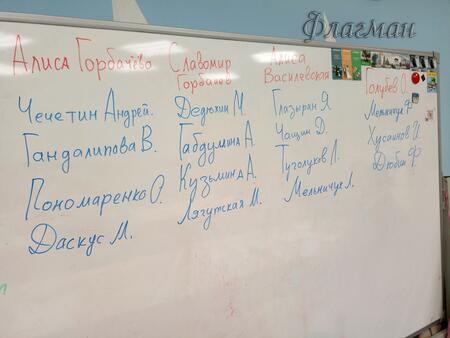 Флагман
Алиса Горбачёво
Чечетин Андрей.
Гандалипова В.
Пономаренко О.
Даскус М.
Славомир
Горбачев
Дедюхин М.
Габдулина А.
Кузьмина А.
Лягутская М.
Алиса
Василевская
Глазырин Я
Чащин Д.
Туголуков Л.
Мельничук Л.
Голубев О.
Мельничук
Хусаинов И.
Дюбин Ф.